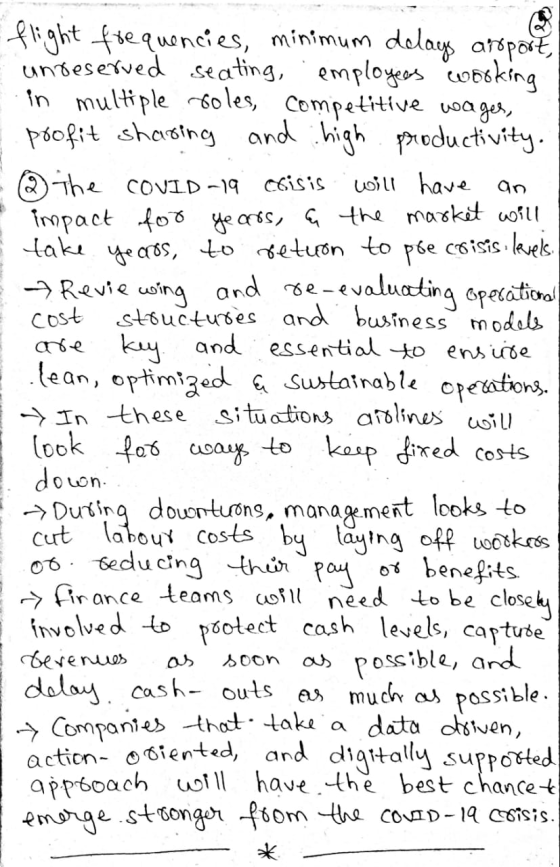 ②
flight frequencies, minimum delays airport,
unreserved seating, employees working
in multiple roles, competitive wages,
profit sharing and high productivity.
② The COVID-19 crisis will have an
impact for years, & the market will
take years, to return to pre crisis levels.
→ Reviewing and re-evaluating operational
cost structures and business models
are key and essential to ensure
lean, optimized & sustainable operations.
→ In these situations airlines will
look for ways to keep fixed costs
down.
→ During downturns, management looks to
cut labour costs by laying off workers
or reducing their pay or benefits
→ Finance teams will need to be closely
involved to protect cash levels, capture
revenues as soon as possible, and
delay cash-outs as much as possible.
→ Companies that take a data driven,
action-oriented, and digitally supported
approach will have the best chance t
emerge stronger from the COVID-19 crisis.
*